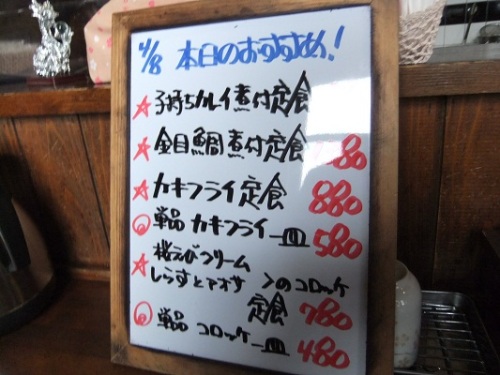 4/8 本日のおすすめ!
☆子持ちカレイ煮付定食
☆金目鯛煮付定食 80
☆カキフライ定食 880
◎単品 カキフライ一皿 580
☆桜えびクリーム
しらすとアオサ >のコロッケ
定食 780
◎単品 コロッケ一皿 480